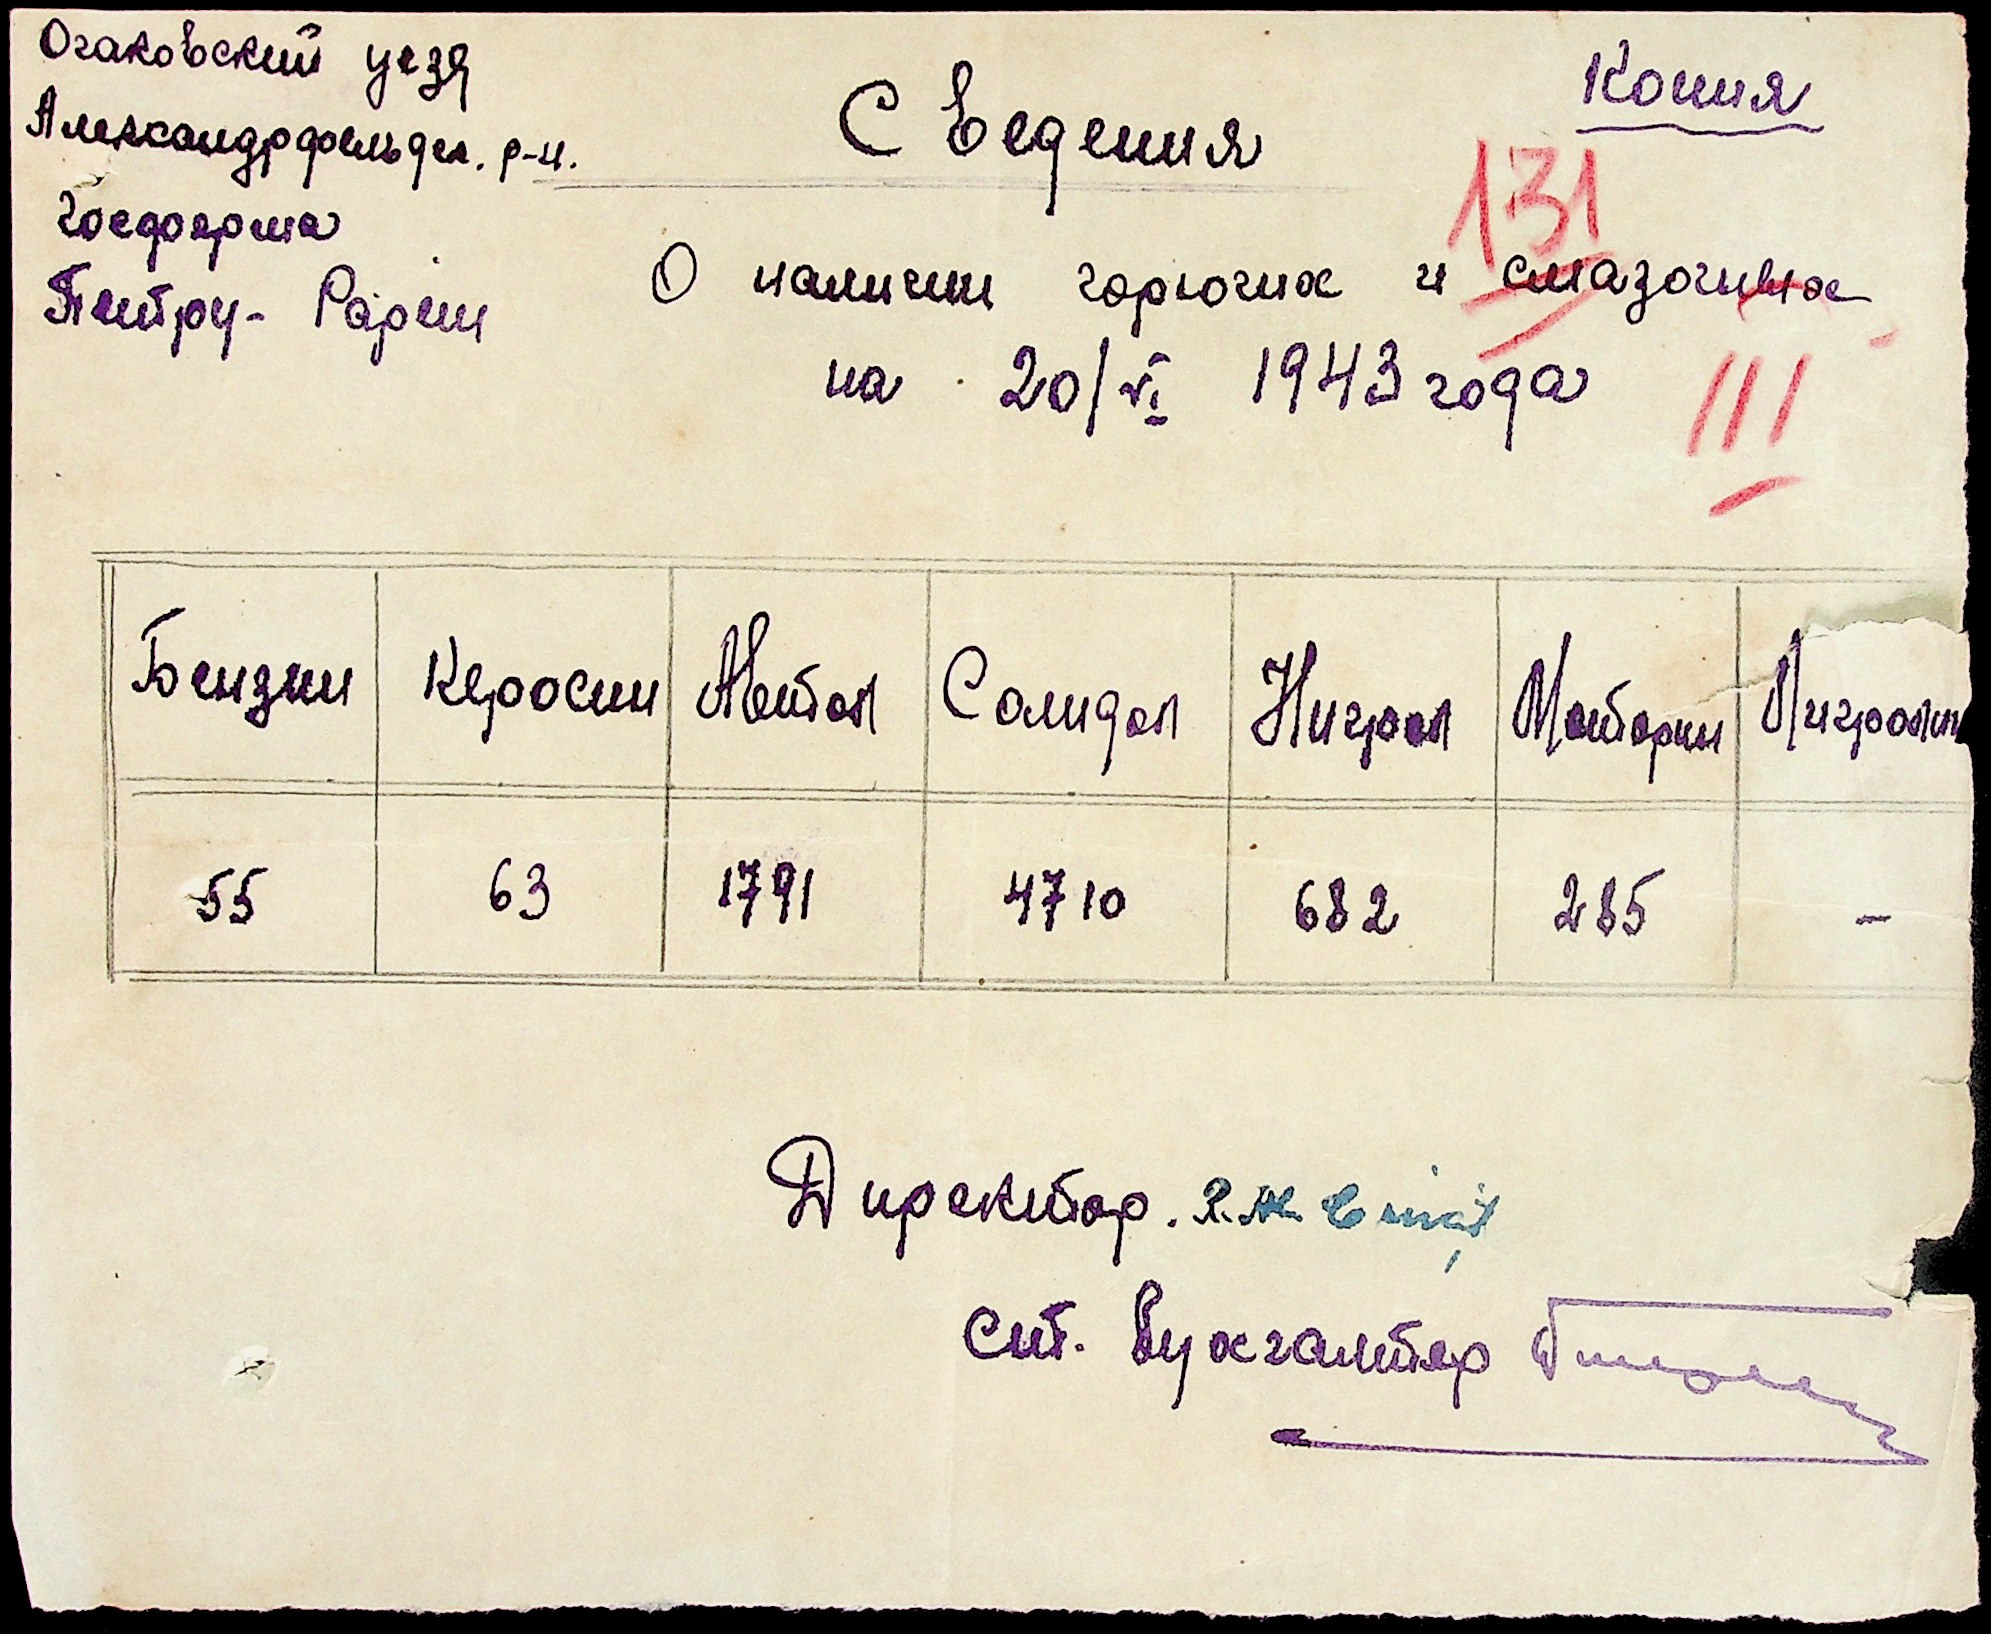 Очаковский уезд
Александрфельдск. р-н.
Госферма
Петру- Рареш
Копия
Сведения
131
О наличии горючих и смазочных
на 20/VI 1943 года
III
Бензин Керосин Автол Солидол Нигрол Моторин Лигроин
55 63 1791 4710 682 285 -
Директор.
Ст. Бухгалтер